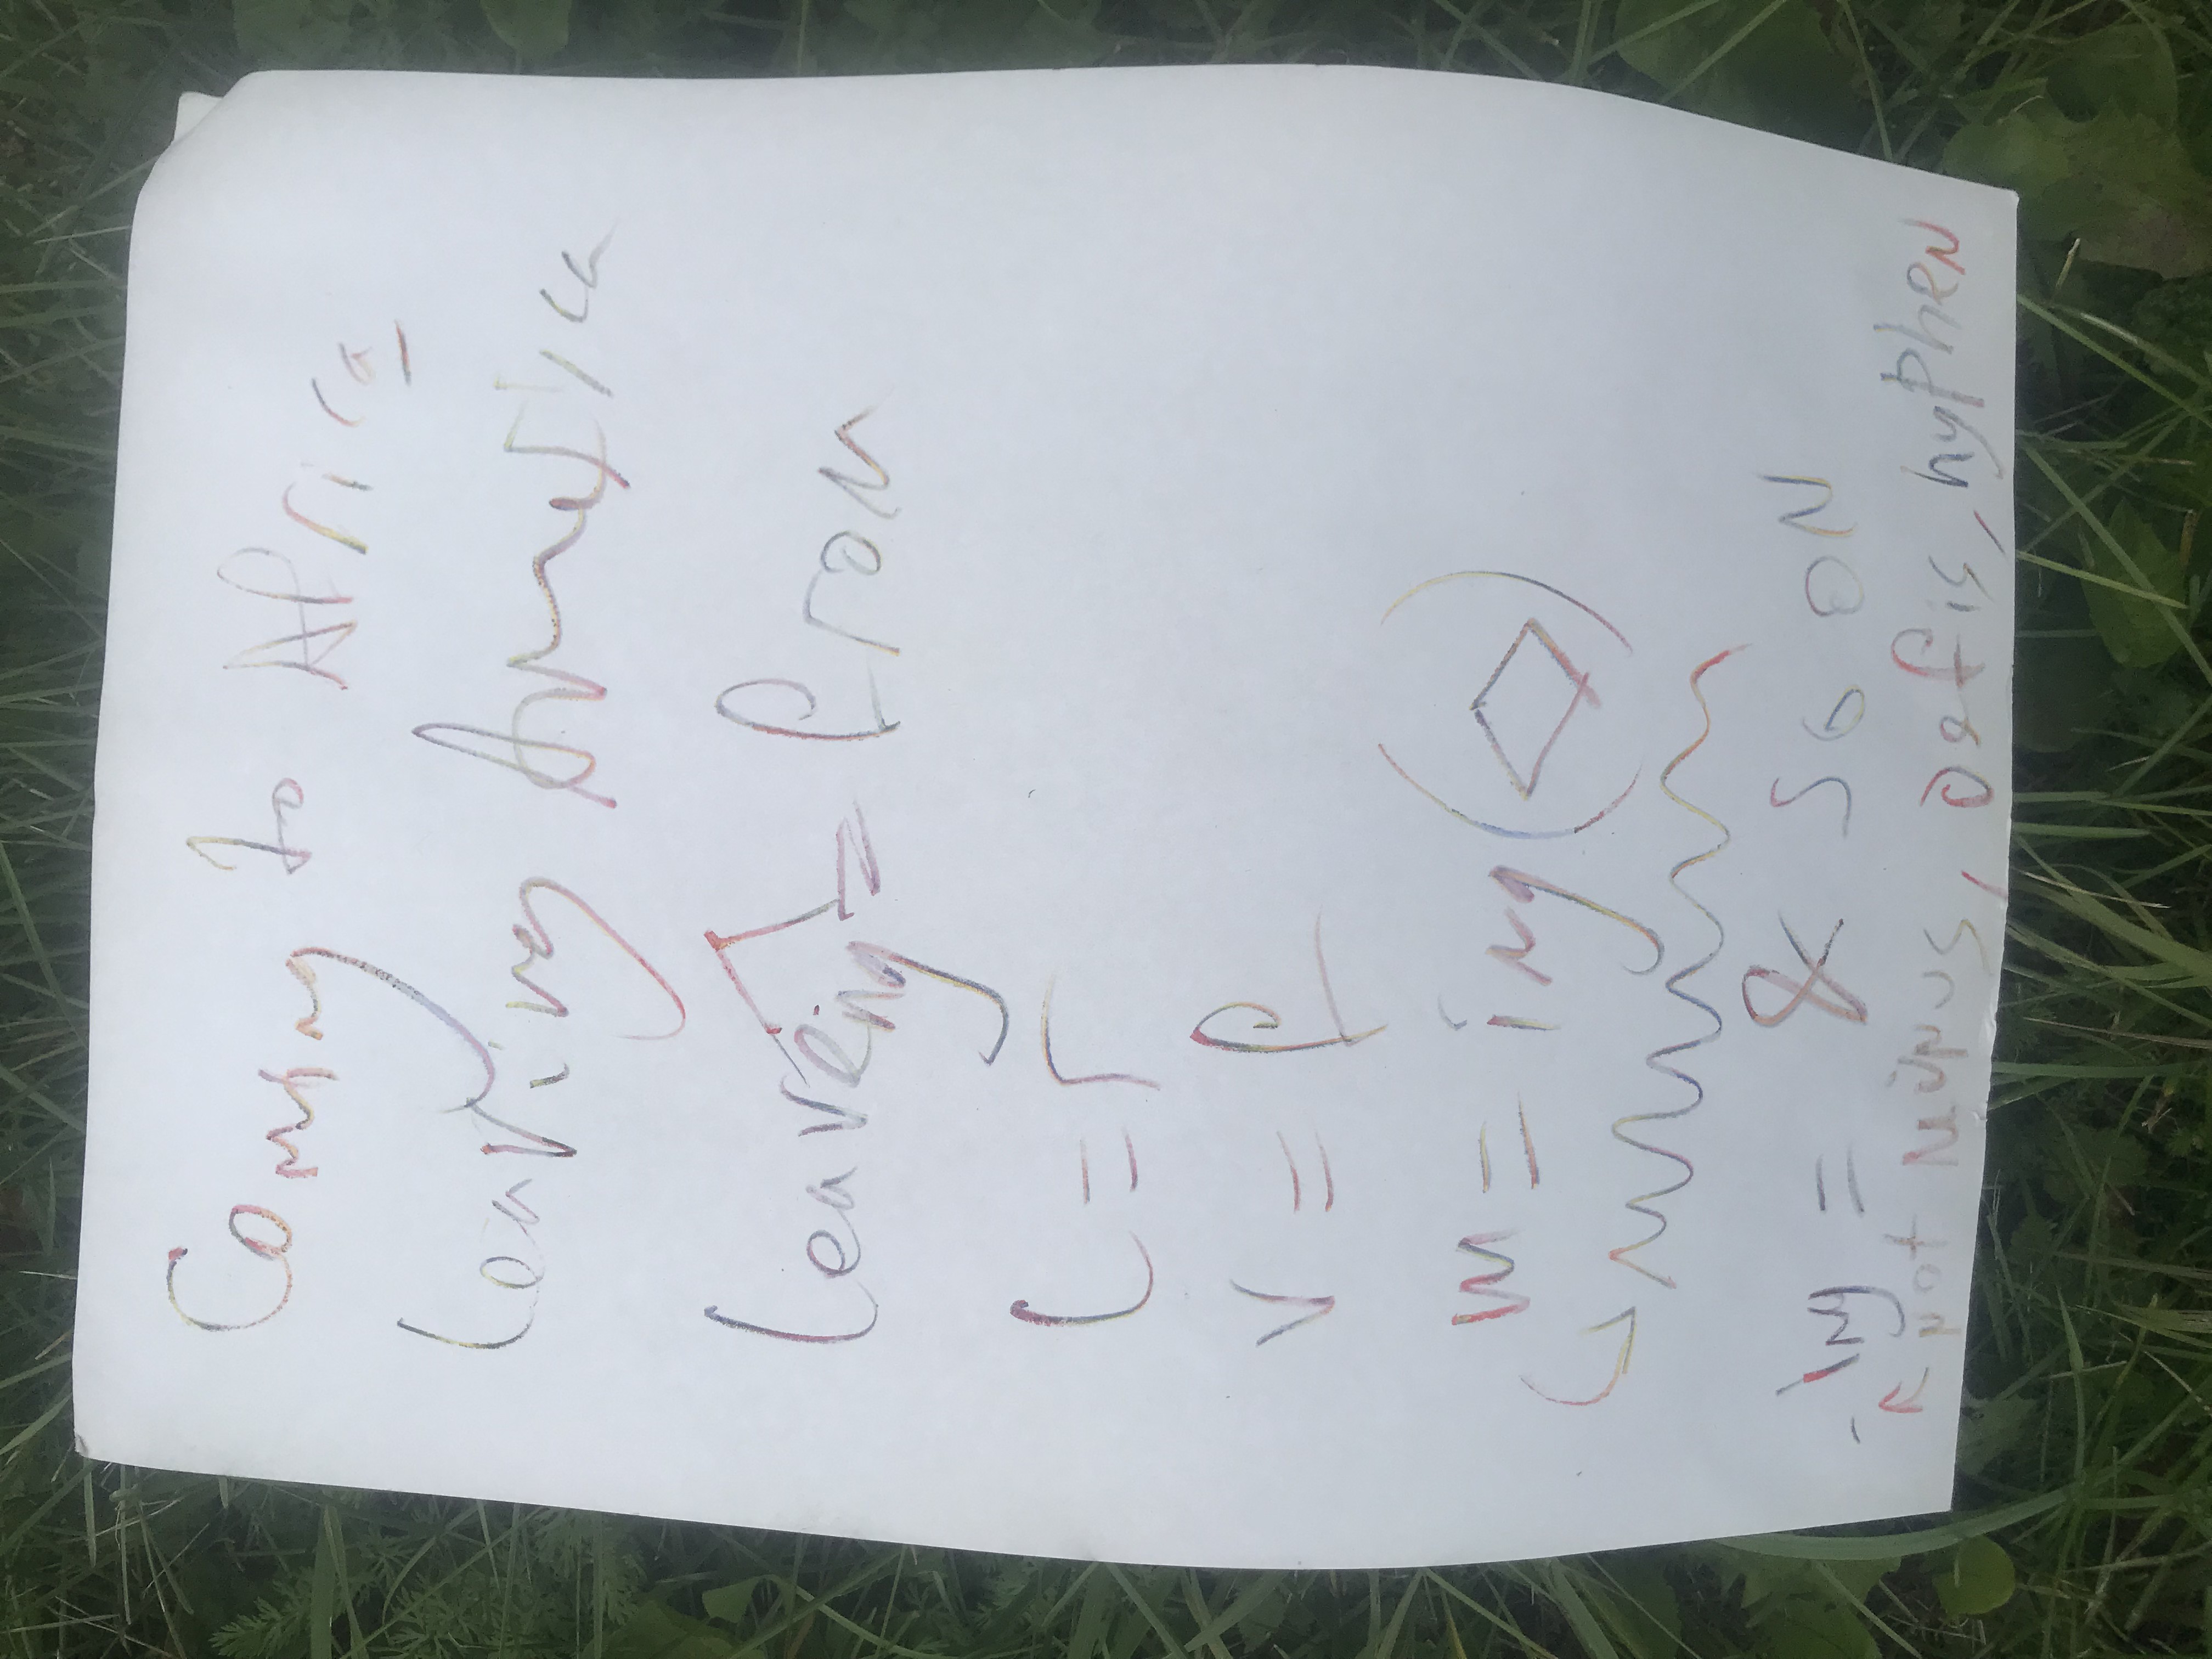 Coming to Africa
leaving America
leaveing = from
l = r
v = f
m = ing ( )
-ing = & so on
not minus, defis, hyphen